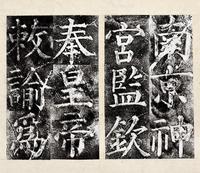 南京神
宮監欽
奉皇帝
敕諭爲